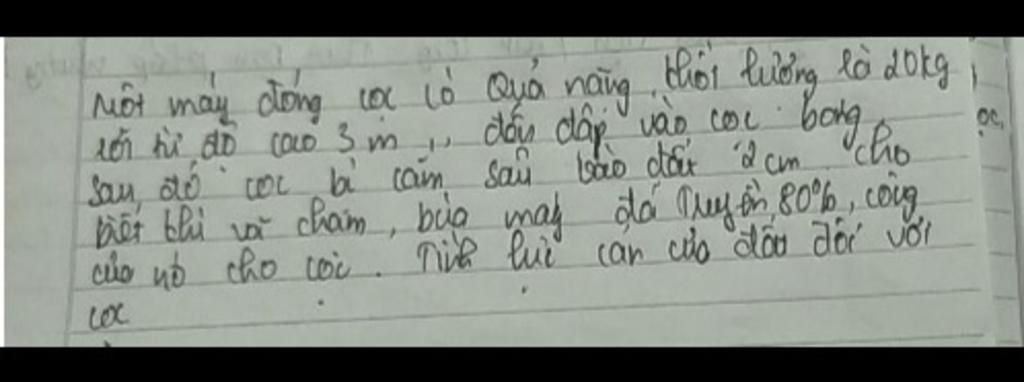 Một máy đóng cọc có Quả nặng, khối lượng là 20kg
rơi từ độ cao 3m, đến đập vào cọc bong
sau, đó cọc bị cắm sâu vào đất 2cm cho
biết khi va chạm, búa máy đã Truyền 80%, công
của nó cho cọc. Tính lực cản của đất đối với
cọc